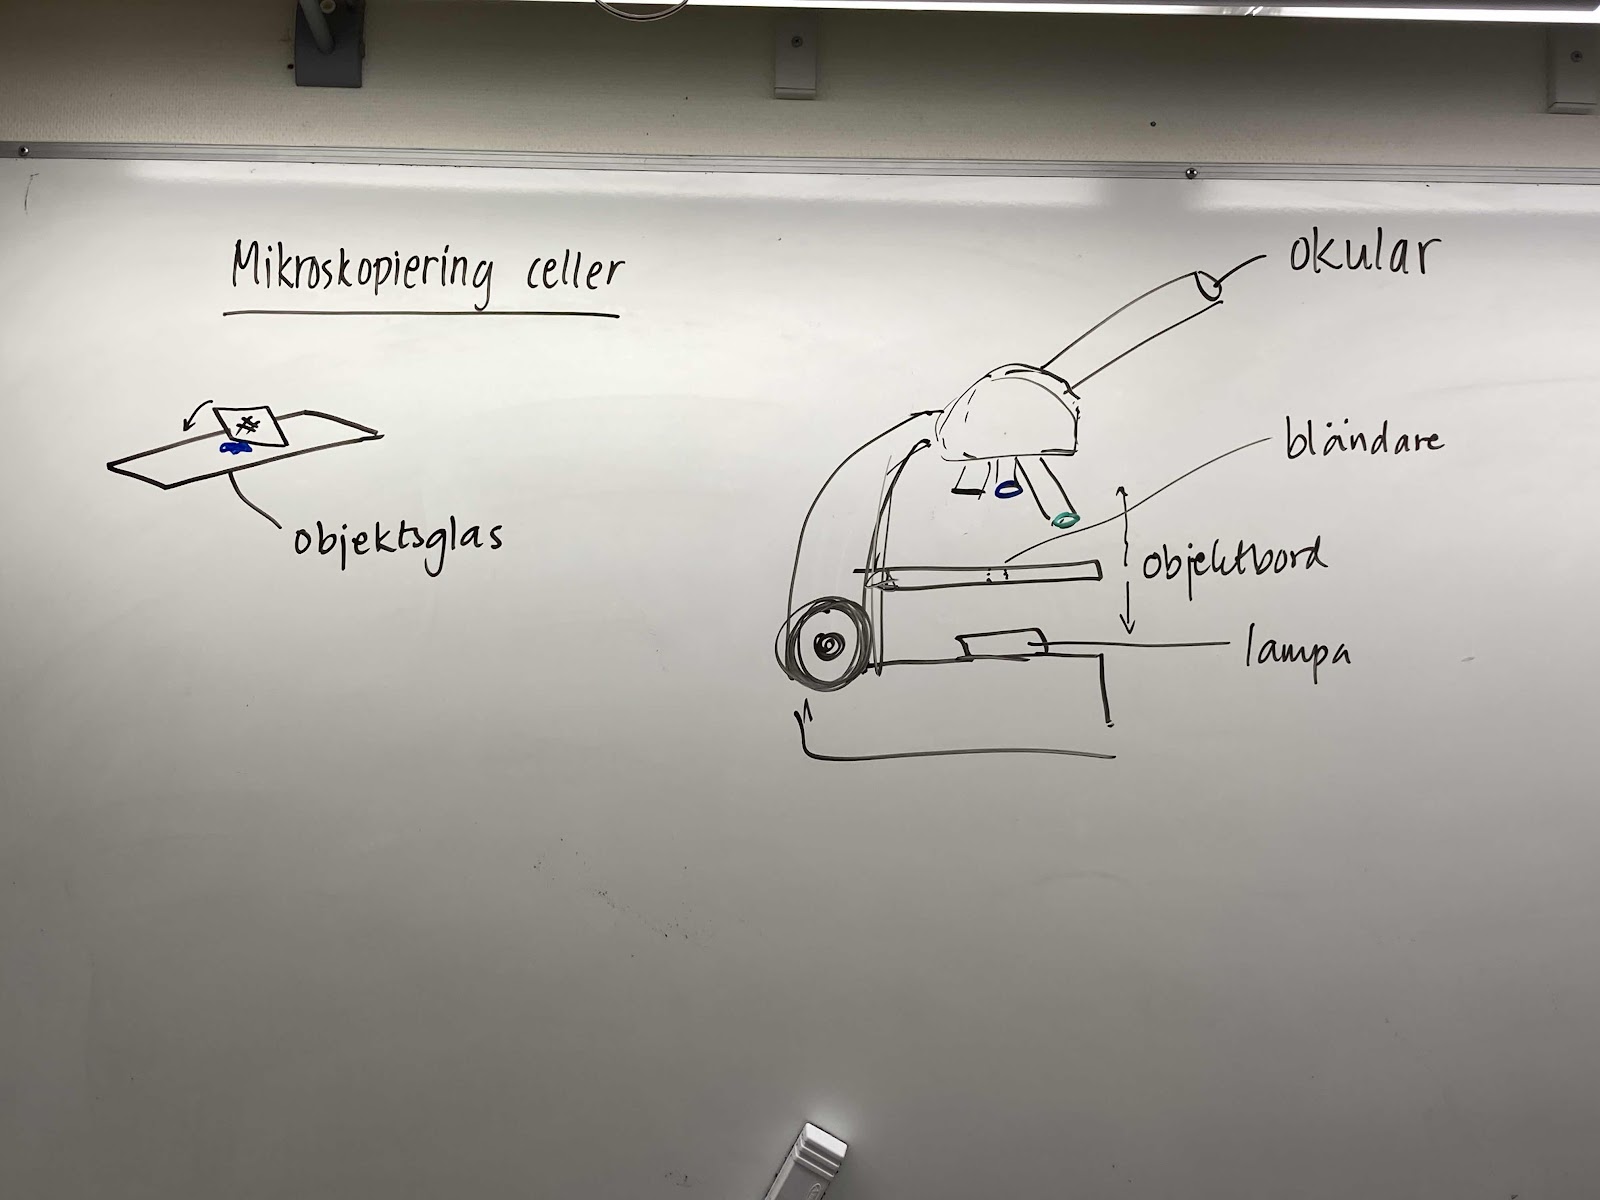 Mikroskopiering celler
okular
bländare
objektsglas
objektbord
lampa